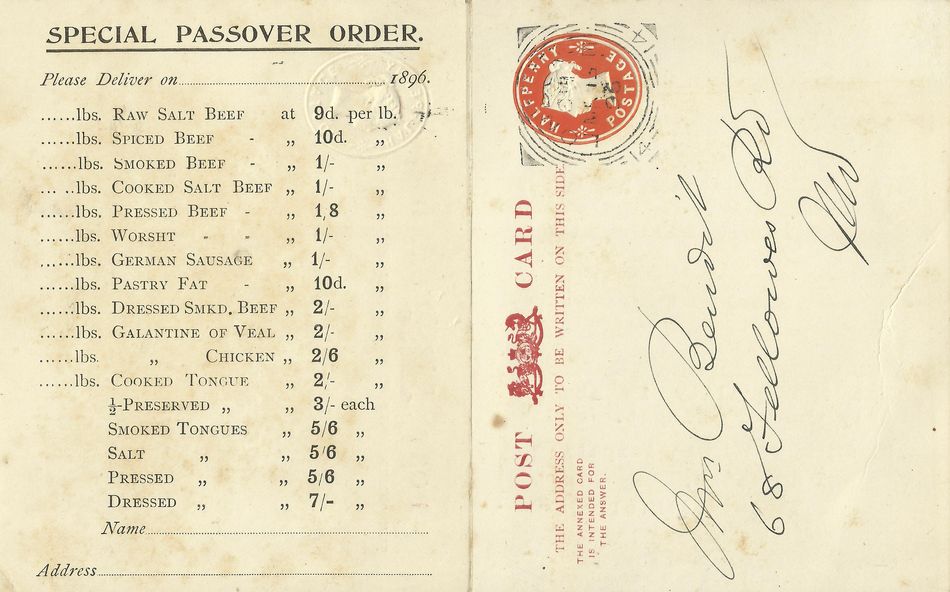 SPECIAL PASSOVER ORDER.
Please Deliver on 1896.
......lbs. RAW SALT BEEF at 9d. per lb.
......lbs. SPICED BEEF - „ 10d. „
......lbs. SMOKED BEEF - „ 1/- „
... ..lbs. COOKED SALT BEEF „ 1/- „
......lbs. PRESSED BEEF - „ 1,8 „
......lbs. WORSHT - - „ 1/- „
......lbs. GERMAN SAUSAGE „ 1/- „
......lbs. PASTRY FAT - „ 10d. „
......lbs. DRESSED SMKD. BEEF „ 2/- „
......lbs. GALANTINE OF VEAL „ 2/- „
......lbs. „ CHICKEN „ 2/6 „
......lbs. COOKED TONGUE „ 2/- „
½-PRESERVED „ „ 3/- each
SMOKED TONGUES „ 5/6 „
SALT „ „ 5/6 „
PRESSED „ „ 5/6 „
DRESSED „ „ 7/- „
Name
Address
HALFPENNY POSTAGE
POST CARD
THE ADDRESS ONLY TO BE WRITTEN ON THIS SIDE
THE ANNEXED CARD
IS INTENDED FOR
THE ANSWER.
Mrs Bendit
68 Fellowes Rd
NW